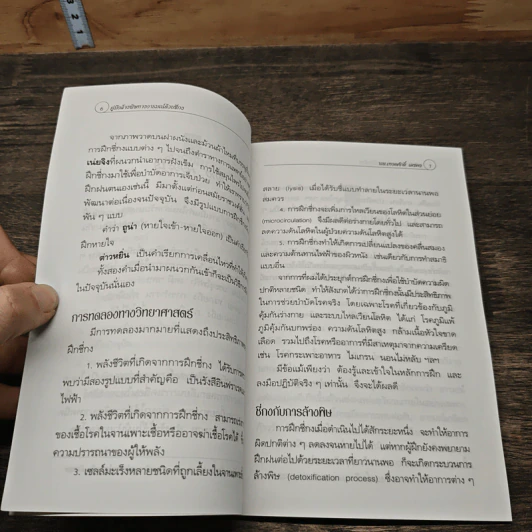 3
2
1
๖ คู่มือล้างพิษทางอารมณ์ด้วยชี่กง
จากภาพวาดบนฝาผนังและม้วนผ้าไหม
การฝึกชี่กงแบบต่าง ๆ ไปจนถึงตำราทางการแพทย์
เน่ยจิงที่ผนวกนำเอาการฝังเข็ม การใช้สมุนไพร
ฝึกชี่กงมาใช้เพื่อบำบัดอาการเจ็บป่วย ทำให้เราทราบ
ฝึกฝนตนเองเช่นนี้ มีมาตั้งแต่ก่อนสมัยราชวงศ์
พัฒนาต่อเนื่องจนปัจจุบัน จึงมีรูปแบบการฝึกชี่กง
พัน ๆ แบบ
คำว่า ถูน่า (หายใจเข้า-หายใจออก) เป็นคำ
ฝึกหายใจ
ต้าวหยิ่น เป็นคำเรียกการเคลื่อนไหวที่ทำให้
ทั้งสองคำเมื่อนำมาผนวกกันเข้าก็จะเป็นวิธี
ในปัจจุบันนั่นเอง
การทดลองทางวิทยาศาสตร์
มีการทดลองมากมายที่แสดงถึงประสิทธิภาพ
ฝึกชี่กง
1. พลังชีวิตที่เกิดจากการฝึกชี่กง ได้รับการ
พบว่ามีสองรูปแบบที่สำคัญคือ เป็นรังสีอินฟราเรด
ไฟฟ้า
2. พลังชีวิตที่เกิดจากการฝึกชี่กง สามารถเร่ง
ของเชื้อโรคในจานเพาะเชื้อหรืออาจฆ่าเชื้อโรคได้ ขึ้น
ความปรารถนาของผู้ให้พลัง
3. เซลล์มะเร็งหลายชนิดที่ถูกเลี้ยงในจานเพาะ
สลาย (lysis) เมื่อได้รับชี่แบบทำลายในระยะเวลานานพอ
สมควร
4. การฝึกชี่กงจะเพิ่มการไหลเวียนของโลหิตในส่วนย่อย
(microcirculation) จึงมีผลดีต่อร่างกายโดยทั่วไป และสามารถ
ลดความดันโลหิตในผู้ป่วยความดันโลหิตสูงได้
5. การฝึกชี่กงทำให้เกิดการเปลี่ยนแปลงของคลื่นสมอง
และความต้านทานไฟฟ้าของผิวหนัง เช่นเดียวกับการทำสมาธิ
แบบอื่น
จากการที่ผมได้ประยุกต์การฝึกชี่กงเพื่อใช้บำบัดความผิด
ปกติหลายชนิด ทำให้สังเกตได้ว่าการฝึกชี่กงนั้นมีประสิทธิภาพ
ในการช่วยบำบัดโรคจริง โดยเฉพาะโรคที่เกี่ยวข้องกับภูมิ
คุ้มกันร่างกาย และระบบไหลเวียนโลหิต ได้แก่ โรคภูมิแพ้
ภูมิคุ้มกันบกพร่อง ความดันโลหิตสูง กล้ามเนื้อหัวใจขาด
เลือด รวมไปถึงโรคหรืออาการที่มีสาเหตุมาจากความเครียด
เช่น โรคกระเพาะอาหาร ไมเกรน นอนไม่หลับ ฯลฯ
มีข้อแม้เพียงว่า ต้องรู้และเข้าใจในหลักการฝึก และ
ลงมือปฏิบัติจริง ๆ เท่านั้น จึงจะได้ผลดี
ชี่กงกับการล้างพิษ
การฝึกชี่กงเมื่อดำเนินไปได้สักระยะหนึ่ง จะทำให้อาการ
ผิดปกติต่าง ๆ ลดลงจนหายไปได้ แต่หากผู้ฝึกยังคงพยายาม
ฝึกฝนต่อไปด้วยระยะเวลาที่ยาวนานพอ ก็จะเกิดกระบวนการ
ล้างพิษ (detoxification process) ซึ่งอาจทำให้อาการต่าง ๆ